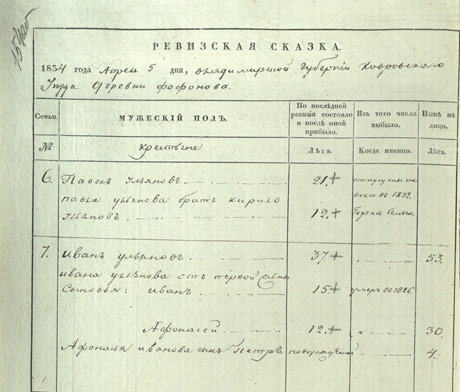 РЕВИЗСКАЯ СКАЗКА.
1834 года Апреля 5 дня, Владимирской Губернiи Ковровскаго
Уезда Деревни
Семьи.
МУЖЕСКIЙ ПОЛЪ.
По последней ревизiи состояло и после оной прибыло.
Изъ того числа выбыло.
Ныне на лицо.
№
крестьяне
Лета.
Когда именно.
Лета.
6.
Павелъ Ульяновъ
21
въ 1832.
Павла Ульянова братъ Кирило
Ульяновъ
12
7.
Иванъ Ульяновъ
37
53.
Ивана Ульянова отъ первой жены
Сыновья: Иванъ
15
умеръ въ 1826.
Афонасей
12
30.
Афонасья Иванова сынъ Петръ
4.